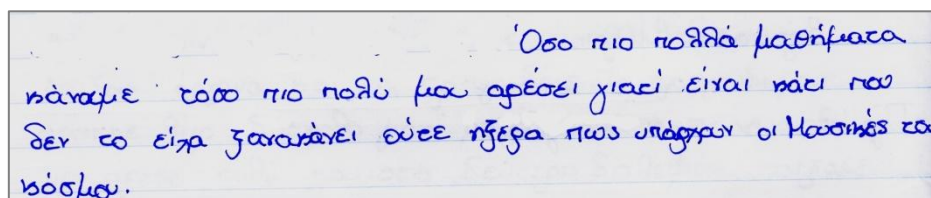 Όσο πιο πολλά μαθήματα
κάναμε τόσο πιο πολύ μου αρέσει γιατί είναι κάτι που
δεν το είχα ξανακάνει ούτε ήξερα πως υπάρχουν οι Μουσικές το
κόσμου.